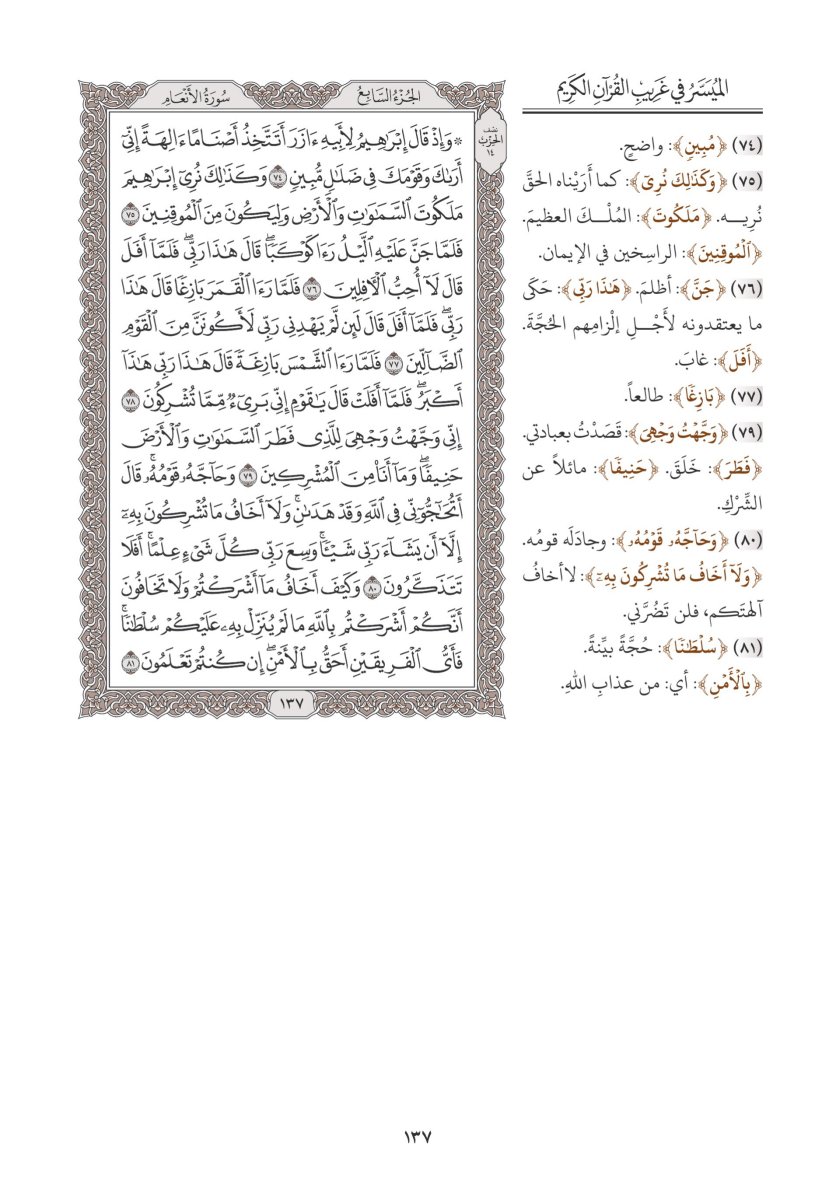 الميَسَّرُ في غَرِيبِ القُرْآنِ الكَرِيم
(٧٤) ﴿مُّبِينٖ﴾: واضحٍ.
(٧٥) ﴿وَكَذَٰلِكَ نُرِيٓ﴾: كما أَرَيْناه الحقَّ
نُرِيــه. ﴿مَلَكُوتَ﴾: المُلْــكَ العظيمَ.
﴿ٱلۡمُوقِنِينَ﴾: الراسِخين في الإيمان.
(٧٦) ﴿جَنَّ﴾: أظلمَ. ﴿هَٰذَا رَبِّي﴾: حَكَى
ما يعتقدونه لأَجْــلِ إلْزامِهم الحُجَّةَ.
﴿أَفَلَ﴾: غابَ.
(٧٧) ﴿بَازِغٗا﴾: طالعاً.
(٧٩) ﴿وَجَّهۡتُ وَجۡهِيَ﴾: قَصَدْتُ بعبادتي.
﴿فَطَرَ﴾: خَلَقَ. ﴿حَنِيفٗا﴾: مائلاً عن
الشِّرْكِ.
(٨٠) ﴿وَحَآجَّهُۥ قَوۡمُهُۥ﴾: وجادَلَه قومُه.
﴿وَلَآ أَخَافُ مَا تُشۡرِكُونَ بِهِۦٓ﴾: لا أخافُ
آلهتَكم، فلن تَضُرَّني.
(٨١) ﴿سُلۡطَٰنٗا﴾: حُجَّةً بيِّنةً.
﴿بِٱلۡأَمۡنِ﴾: أي: من عذابِ اللهِ.
الجُزْءُ السَّابِعُ
سُورَةُ الأَنْعَامِ
نصف
الحِزْب
١٤
۞ وَإِذۡ قَالَ إِبۡرَٰهِيمُ لِأَبِيهِ ءَازَرَ أَتَتَّخِذُ أَصۡنَامًا ءَالِهَةً إِنِّيٓ
أَرَىٰكَ وَقَوۡمَكَ فِي ضَلَٰلٖ مُّبِينٖ ٧٤ وَكَذَٰلِكَ نُرِيٓ إِبۡرَٰهِيمَ
مَلَكُوتَ ٱلسَّمَٰوَٰتِ وَٱلۡأَرۡضِ وَلِيَكُونَ مِنَ ٱلۡمُوقِنِينَ ٧٥
فَلَمَّا جَنَّ عَلَيۡهِ ٱلَّيۡلُ رَءَا كَوۡكَبٗاۖ قَالَ هَٰذَا رَبِّيۖ فَلَمَّآ أَفَلَ
قَالَ لَآ أُحِبُّ ٱلۡأٓفِلِينَ ٧٦ فَلَمَّا رَءَا ٱلۡقَمَرَ بَازِغٗا قَالَ هَٰذَا
رَبِّيۖ فَلَمَّآ أَفَلَ قَالَ لَئِن لَّمۡ يَهۡدِنِي رَبِّي لَأَكُونَنَّ مِنَ ٱلۡقَوۡمِ
ٱلضَّآلِّينَ ٧٧ فَلَمَّا رَءَا ٱلشَّمۡسَ بَازِغَةٗ قَالَ هَٰذَا رَبِّي هَٰذَآ
أَكۡبَرُۖ فَلَمَّآ أَفَلَتۡ قَالَ يَٰقَوۡمِ إِنِّي بَرِيٓءٞ مِّمَّا تُشۡرِكُونَ ٧٨
إِنِّي وَجَّهۡتُ وَجۡهِيَ لِلَّذِي فَطَرَ ٱلسَّمَٰوَٰتِ وَٱلۡأَرۡضَ
حَنِيفٗاۖ وَمَآ أَنَا۠ مِنَ ٱلۡمُشۡرِكِينَ ٧٩ وَحَآجَّهُۥ قَوۡمُهُۥۚ قَالَ
أَتُحَٰٓجُّوٓنِّي فِي ٱللَّهِ وَقَدۡ هَدَىٰنِۚ وَلَآ أَخَافُ مَا تُشۡرِكُونَ بِهِۦٓ
إِلَّآ أَن يَشَآءَ رَبِّي شَيۡـٔٗاۚ وَسِعَ رَبِّي كُلَّ شَيۡءٍ عِلۡمًاۚ أَفَلَا
تَتَذَكَّرُونَ ٨٠ وَكَيۡفَ أَخَافُ مَآ أَشۡرَكۡتُمۡ وَلَا تَخَافُونَ
أَنَّكُمۡ أَشۡرَكۡتُم بِٱللَّهِ مَا لَمۡ يُنَزِّلۡ بِهِۦ عَلَيۡكُمۡ سُلۡطَٰنٗاۚ
فَأَيُّ ٱلۡفَرِيقَيۡنِ أَحَقُّ بِٱلۡأَمۡنِۖ إِن كُنتُمۡ تَعۡلَمُونَ ٨١
١٣٧
١٣٧